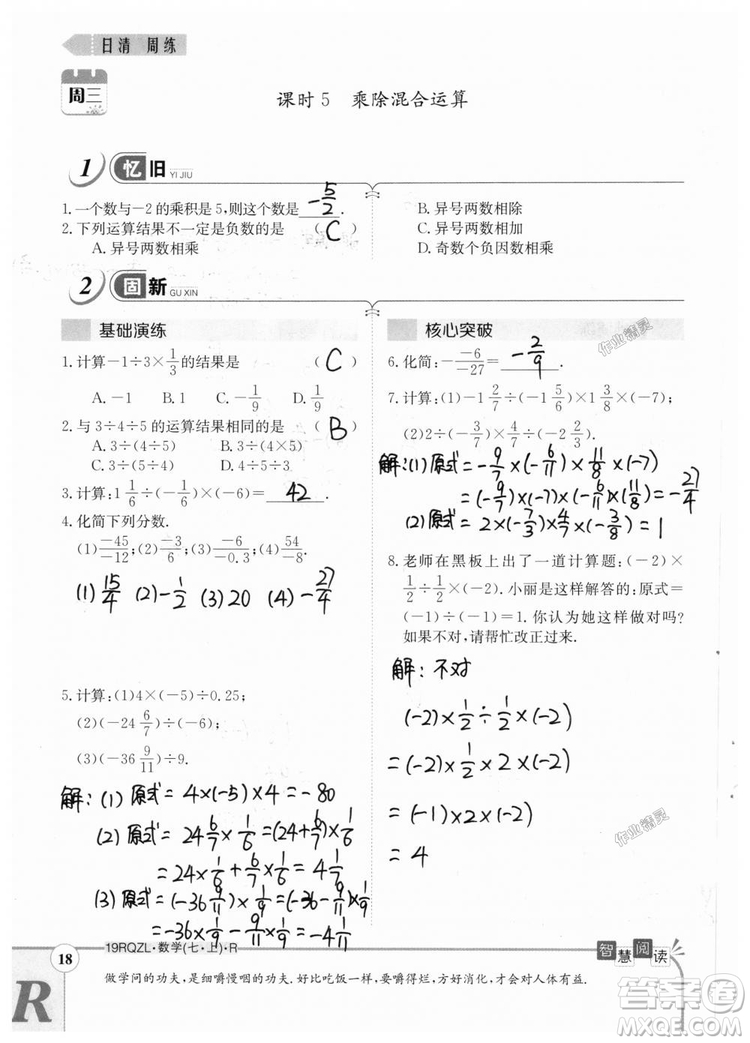 日清 周练
周三
课时5 乘除混合运算
1 忆旧 YI JIU
1.一个数与-2的乘积是5,则这个数是 -5/2 .
2.下列运算结果不一定是负数的是 ( C )
A.异号两数相乘
B.异号两数相除
C.异号两数相加
D.奇数个负因数相乘
2 固新 GU XIN
基础演练
1.计算-1÷3×1/3的结果是 ( C )
A.-1 B.1 C.-1/9 D.1/9
2.与3÷4÷5的运算结果相同的是 ( B )
A.3÷(4÷5) B.3÷(4×5)
C.3÷(5÷4) D.4÷3÷5
3.计算:1 1/6÷(-1/6)×(-6)= 42 .
4.化简下列分数.
(1)-45/-12;(2)-3/6;(3)-6/-0.3;(4)54/-8.
(1) 15/4 (2) -1/2 (3) 20 (4) -27/4
5.计算:(1)4×(-5)÷0.25;
(2)(-24 6/7)÷(-6);
(3)(-36 9/11)÷9.
解:(1) 原式=4×(-5)×4=-80
(2) 原式=24 6/7×1/6=(24+6/7)×1/6
=24×1/6+6/7×1/6=29/7
(3) 原式=(-36 9/11)×1/9=(-36-9/11)×1/9
=-36×1/9-9/11×1/9=-45/11
核心突破
6.化简:--6/-27= -2/9 .
7.计算:(1)-1 2/7÷(-1 5/6)×1 3/8×(-7);
(2)2÷(-3/7)×4/7÷(-2 2/3).
解:(1) 原式=-9/7×(-6/11)×11/8×(-7)
=(-9/7)×(-7)×(-6/11)×(11/8)=-27/4
(2) 原式=2×(-7/3)×4/7×(-3/8)=1
8.老师在黑板上出了一道计算题:(-2)×
1/2÷1/2×(-2).小丽是这样解答的:原式=
(-1)÷(-1)=1.你认为她这样做对吗?
如果不对,请帮忙改正过来.
解:不对
(-2)×1/2÷1/2×(-2)
=(-2)×1/2×2×(-2)
=(-1)×2×(-2)
=4
18
19RQZL·数学(七·上)·R
智慧阅读
做学问的功夫,是细嚼慢咽的功夫.好比吃饭一样,要嚼得烂,方好消化,才会对人体有益.
R
作业精灵
作业精灵
答案卷